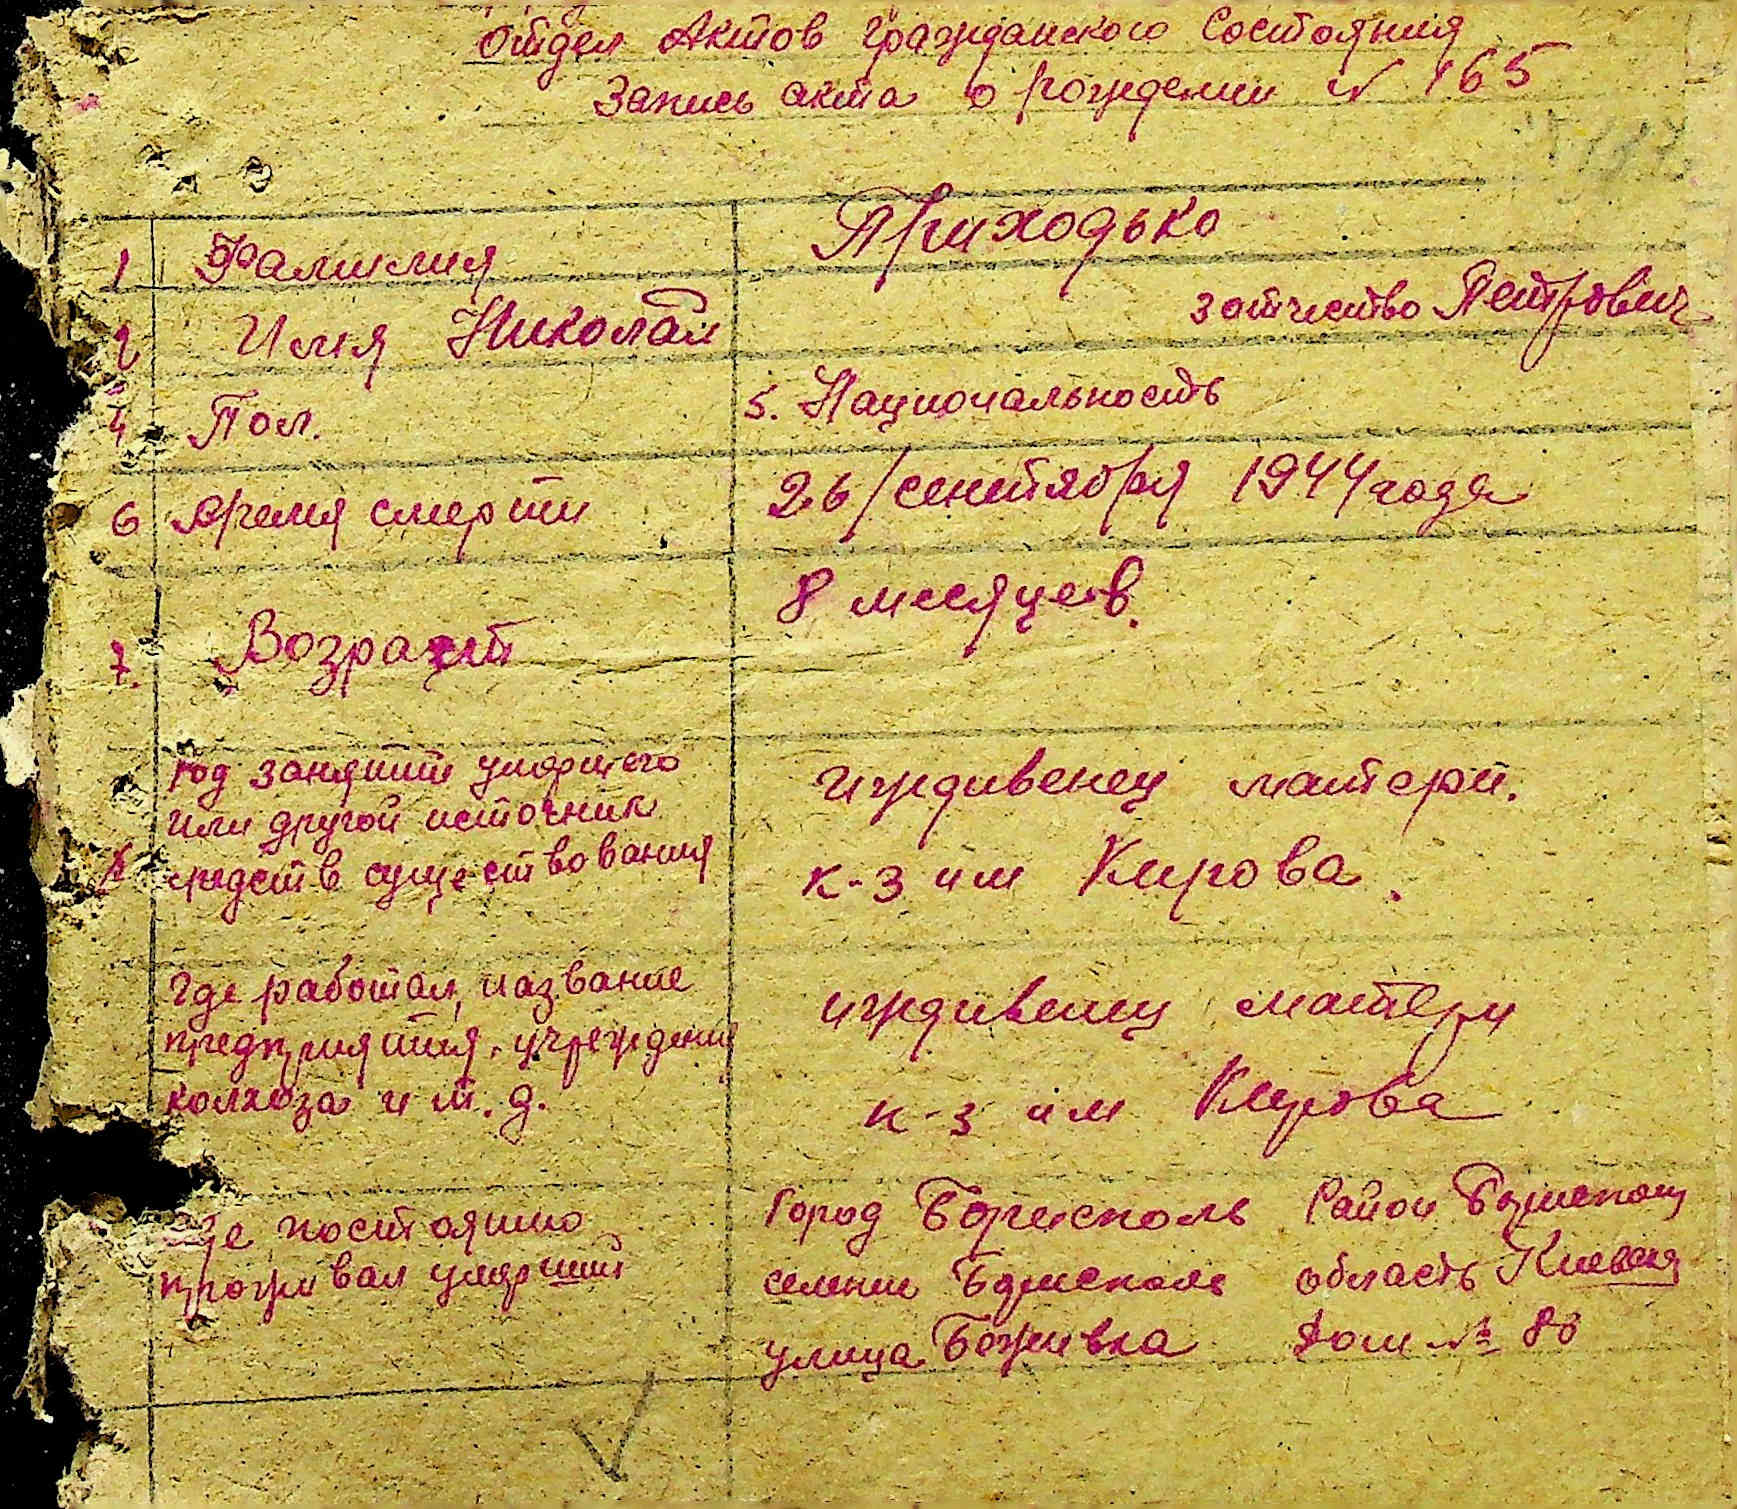 Отдел Актов Гражданского Состояния
Запись акта о рождении № 165
1 Фамилия Приходько
2 Имя Николай 3 отчество Петрович
4 Пол. 5. Национальность
6 Время смерти 26/сентября 1944 года
7. Возраст 8 месяцев.
Род занятий умершего
или другой источник
средств существования
иждивенец матери.
к-з им Кирова.
Где работал, название
предприятия, учреждения
колхоза и т. д.
иждивенец матери
к-з им Кирова
Где постоянно
проживал умерший
Город Борисполь Район Бориспол
селение Борисполь область Киевская
улица Дом №